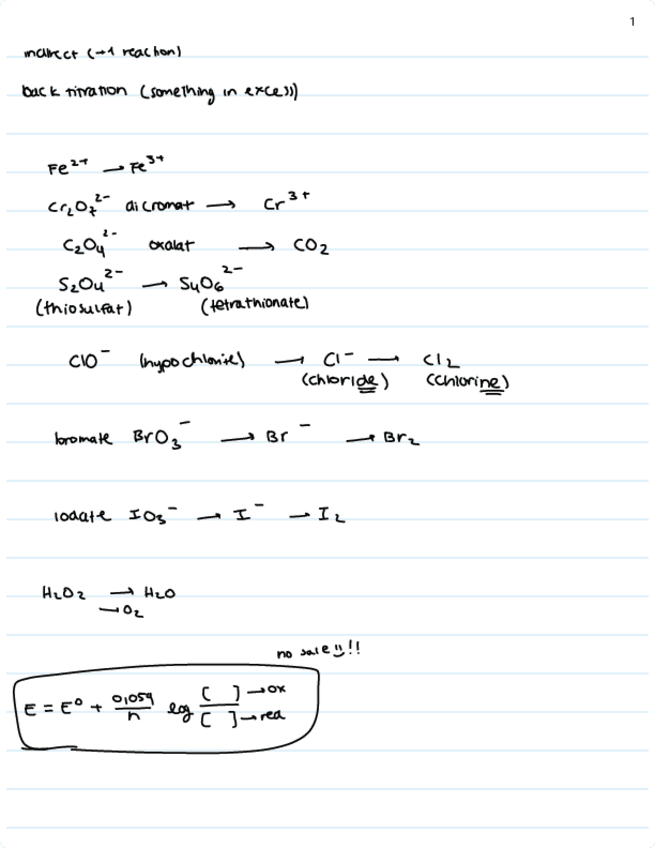 1
indirect (→1 reaction)
back titration (something in excess)
Fe²⁺ → Fe³⁺
Cr₂O₇²⁻ dicromat → Cr³⁺
C₂O₄²⁻ oxalat → CO₂
S₂O₄²⁻ → S₄O₆²⁻
(thiosulfat) (tetrathionate)
ClO⁻ (hypochlorite) → Cl⁻ → Cl₂
(chloride) (chlorine)
bromate BrO₃⁻ → Br⁻ → Br₂
iodate IO₃⁻ → I⁻ → I₂
H₂O₂ → H₂O
→ O₂
no !!
E = E⁰ + 0,059/n log [ ]→ox / [ ]→red